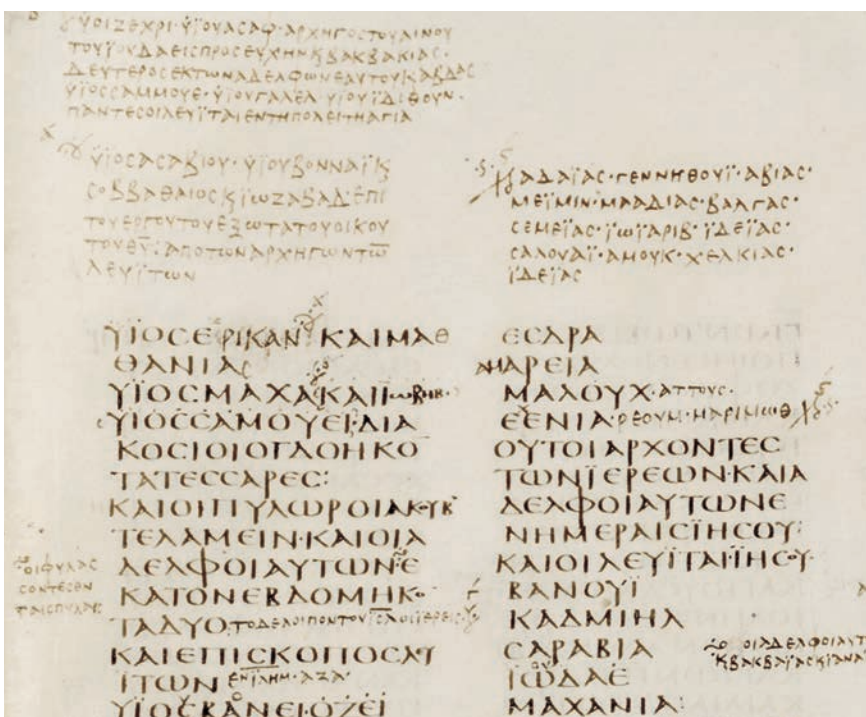 ΥΪΟΙΖΕΧΡΙ·ΥΪΟΥΑΣΑΦ·ΑΡΧΗΓΟΣΤΟΥΑΙΝΟΥ
ΤΟΥΪΟΥΔΑΕΙΣΠΡΟΣΕΥΧΗΝΚΒΑΚΒΑΚΙΑΣ·
ΔΕΥΤΕΡΟΣΕΚΤΩΝΑΔΕΛΦΩΝΕΑΥΤΟΥΚΑΒΔΑΣ
ΥΪΟΣΣΑΜΜΟΥΕ·ΥΪΟΥΓΑΛΕΛ ΥΪΟΥΪΔΙΘΟΥΝ·
ΠΑΝΤΕΣΟΙΛΕΥΪΤΑΙΕΝΤΗΠΟΛΕΙΤΗΑΓΙΑ
ΥΪΟΣΑΣΑΒΙΟΥ·ΥΪΟΥΒΟΝΝΑΪΚ
ΣΟΒΒΑΘΑΙΟΣΚΪΩΖΑΒΑΔ·ΕΠΙ
ΤΟΥΕΡΓΟΥΤΟΥΕΞΩΤΑΤΟΥΟΙΚΟΥ
ΤΟΥΘΥ·ΑΠΟΤΩΝΑΡΧΗΓΩΝΤΩ
ΛΕΥΪΤΩΝ
ΥΪΟΣΕΡΙΚΑΝ ΚΑΙΜΑΘ
ΘΑΝΙΑΣ
ΥΪΟΣΜΑΧΑΚΑΙΙΩΒΗΚ·
ΥΪΟΣΣΑΜΟΥΕΙ·ΔΙΑ
ΚΟΣΙΟΙΟΓΔΟΗΚΟ
ΤΑΤΕΣΣΑΡΕΣ:
ΚΑΙΟΙΠΥΛΩΡΟΙΑΚΟΥΚ
ΤΕΛΑΜΕΙΝ·ΚΑΙΟΙΑ
ΔΕΛΦΟΙΑΥΤΩΝΕ
ΟΙΦΥΛΑΣ
ΣΟΝΤΕΣΕΝ
ΤΑΙΣΠΥΛΑΙΣ
ΚΑΤΟΝΕΒΔΟΜΗΚΟ
ΤΑΔΥΟ:ΤΟΔΕΛΟΙΠΟΝΤΟΥΙΣΛΟΙΪΕΡΕΙΣ
ΚΑΙΕΠΙΣΚΟΠΟΣΛΥ
ΪΤΩΝ ΕΝΪΛΗΜ·ΑΖΑ
ΥΪΟΣΚΑΝΕΙ·ΟΖΕΪ
ΑΔΑΪΑΣ·ΓΕΝΝΗΘΟΥΪ·ΑΒΙΑΣ·
ΜΕΪΜΙΝ·ΜΑΑΔΙΑΣ·ΒΑΛΓΑΣ·
ΣΕΜΕΪΑΣ·ΪΩΪΑΡΙΒ·ΪΔΕΪΑΣ·
ΣΑΛΟΥΑΪ·ΑΜΟΥΚ·ΧΕΛΚΙΑΣ·
ΪΔΕΪΑΣ
ΕΣΑΡΑ
ΑΜΑΡΕΙΑ
ΜΑΛΟΥΧ·ΑΤΤΟΥΣ·
ΕΕΝΙΑ·ΡΕΟΥΜ·ΜΑΡΙΜΩΘ
ΟΥΤΟΙΑΡΧΟΝΤΕΣ
ΤΩΝΪΕΡΕΩΝ·ΚΑΙΑ
ΔΕΛΦΟΙΑΥΤΩΝΕ
ΝΗΜΕΡΑΙΣΪΗΣΟΥ:
ΚΑΙΟΙΛΕΥΪΤΑΙ·ΪΗΣΟΥ
ΒΑΝΟΥΪ
ΚΑΔΜΙΗΛ
ΣΑΡΑΒΙΑ
ΟΙΑΔΕΛΦΟΙΑΥΤ
ΚΒΑΚΒΑΪΑΣΚΪΑΝΑ
ΪΩΔΑΕ
ΜΑΧΑΝΙΑ: